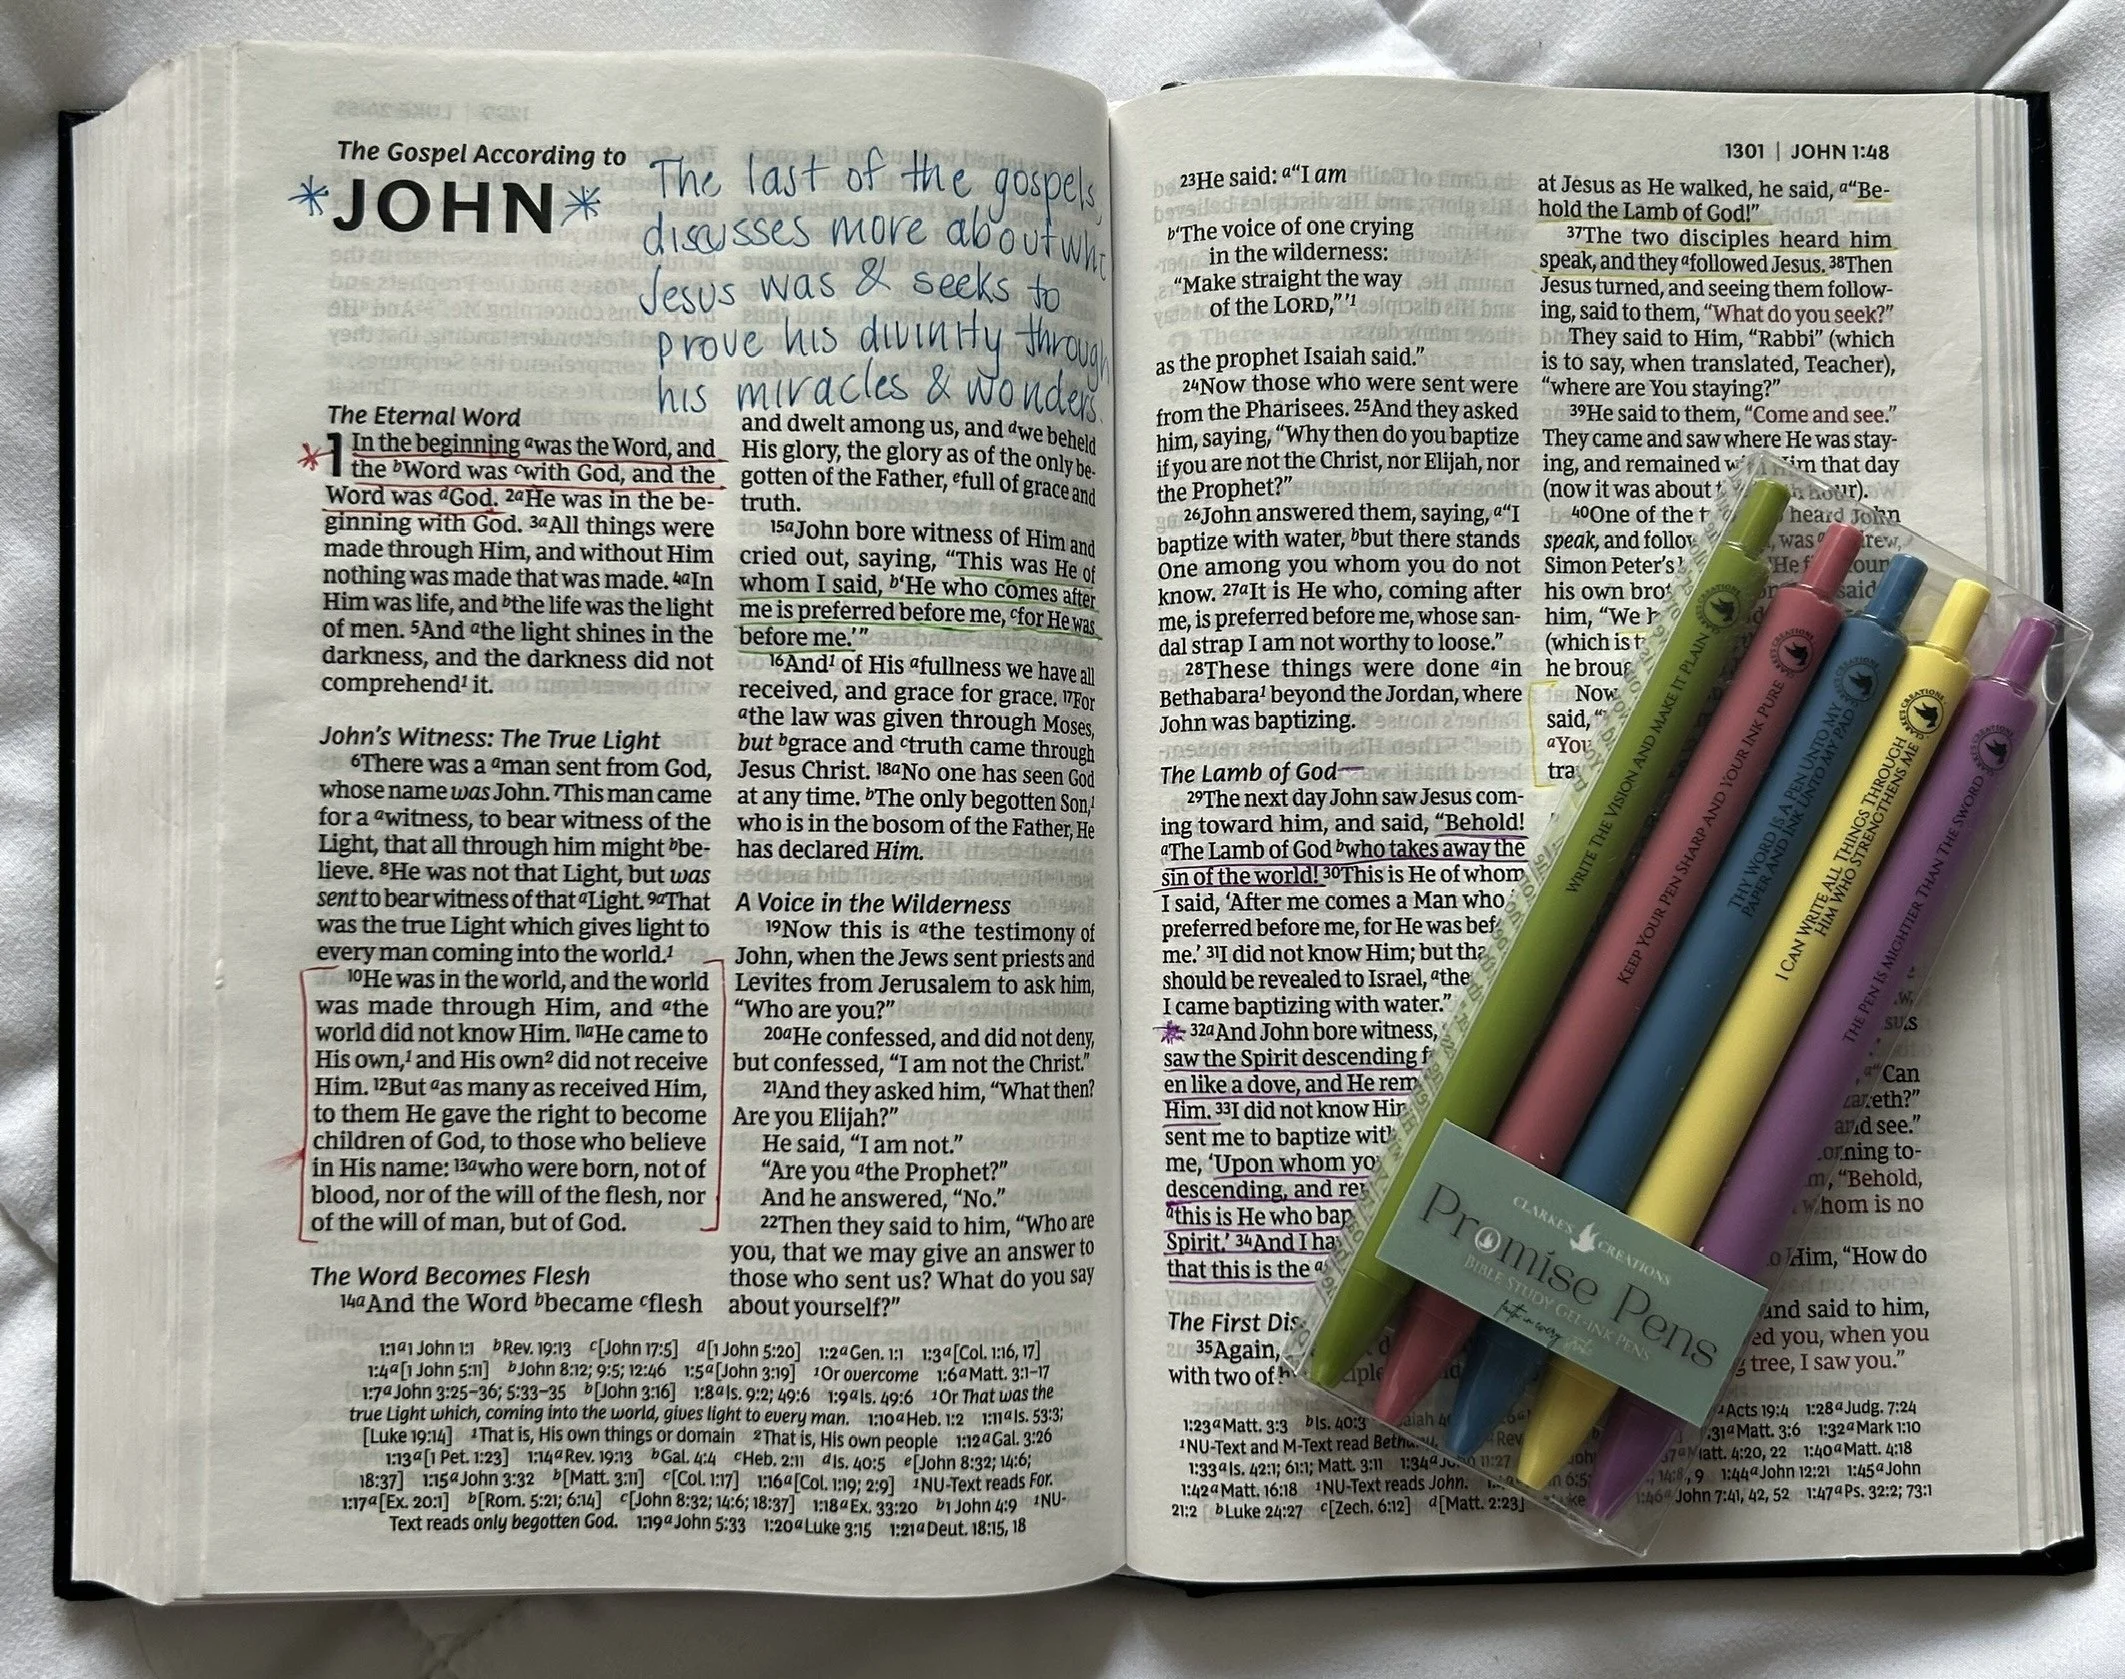 The Gospel According to
*JOHN*
The last of the gospels,
discusses more about who
Jesus was & seeks to
prove his divinity through
his miracles & wonders.
The Eternal Word
* 1 In the beginning ᵃwas the Word, and
the ᵇWord was ᶜwith God, and the
Word was ᵈGod. ²ᵃHe was in the be-
ginning with God. ³ᵃAll things were
made through Him, and without Him
nothing was made that was made. ⁴ᵃIn
Him was life, and ᵇthe life was the light
of men. ⁵And ᵃthe light shines in the
darkness, and the darkness did not
comprehend¹ it.
John's Witness: The True Light
⁶There was a ᵃman sent from God,
whose name was John. ⁷This man came
for a ᵃwitness, to bear witness of the
Light, that all through him might ᵇbe-
lieve. ⁸He was not that Light, but was
sent to bear witness of that ᵃLight. ⁹ᵃThat
was the true Light which gives light to
every man coming into the world.¹
¹⁰He was in the world, and the world
was made through Him, and ᵃthe
world did not know Him. ¹¹ᵃHe came to
His own,¹ and His own² did not receive
Him. ¹²But ᵃas many as received Him,
to them He gave the right to become
children of God, to those who believe
in His name: ¹³ᵃwho were born, not of
blood, nor of the will of the flesh, nor
of the will of man, but of God.
The Word Becomes Flesh
¹⁴ᵃAnd the Word ᵇbecame ᶜflesh
and dwelt among us, and ᵈwe beheld
His glory, the glory as of the only be-
gotten of the Father, ᵉfull of grace and
truth.
¹⁵ᵃJohn bore witness of Him and
cried out, saying, “This was He of
whom I said, ᵇ‘He who comes after
me is preferred before me, ᶜfor He was
before me.’”
¹⁶And¹ of His ᵃfullness we have all
received, and grace for grace. ¹⁷For
ᵃthe law was given through Moses,
but ᵇgrace and ᶜtruth came through
Jesus Christ. ¹⁸ᵃNo one has seen God
at any time. ᵇThe only begotten Son,¹
who is in the bosom of the Father, He
has declared Him.
A Voice in the Wilderness
¹⁹Now this is ᵃthe testimony of
John, when the Jews sent priests and
Levites from Jerusalem to ask him,
“Who are you?”
²⁰ᵃHe confessed, and did not deny,
but confessed, “I am not the Christ.”
²¹And they asked him, “What then?
Are you Elijah?”
He said, “I am not.”
“Are you ᵃthe Prophet?”
And he answered, “No.”
²²Then they said to him, “Who are
you, that we may give an answer to
those who sent us? What do you say
about yourself?”
1:1 ᵃ1 John 1:1 ᵇRev. 19:13 ᶜ[John 17:5] ᵈ[1 John 5:20] 1:2 ᵃGen. 1:1 1:3 ᵃ[Col. 1:16, 17]
1:4 ᵃ[1 John 5:11] ᵇJohn 8:12; 9:5; 12:46 1:5 ᵃ[John 3:19] ¹Or overcome 1:6 ᵃMatt. 3:1–17
1:7 ᵃJohn 3:25–36; 5:33–35 ᵇ[John 3:16] 1:8 ᵃIs. 9:2; 49:6 1:9 ᵃIs. 49:6 ¹Or That was the
true Light which, coming into the world, gives light to every man. 1:10 ᵃHeb. 1:2 1:11 ᵃIs. 53:3;
[Luke 19:14] ¹That is, His own things or domain ²That is, His own people 1:12 ᵃGal. 3:26
1:13 ᵃ[1 Pet. 1:23] 1:14 ᵃRev. 19:13 ᵇGal. 4:4 ᶜHeb. 2:11 ᵈIs. 40:5 ᵉ[John 8:32; 14:6;
18:37] 1:15 ᵃJohn 3:32 ᵇ[Matt. 3:11] ᶜ[Col. 1:17] 1:16 ᵃ[Col. 1:19; 2:9] ¹NU-Text reads For.
1:17 ᵃ[Ex. 20:1] ᵇ[Rom. 5:21; 6:14] ᶜ[John 8:32; 14:6; 18:37] 1:18 ᵃEx. 33:20 ᵇ1 John 4:9 ¹NU-
Text reads only begotten God. 1:19 ᵃJohn 5:33 1:20 ᵃLuke 3:15 1:21 ᵃDeut. 18:15, 18
1301 | JOHN 1:48
²³He said: ᵃ“I am
ᵇ‘The voice of one crying
in the wilderness:
“Make straight the way
of the LORD,”’¹
as the prophet Isaiah said.”
²⁴Now those who were sent were
from the Pharisees. ²⁵And they asked
him, saying, “Why then do you baptize
if you are not the Christ, nor Elijah, nor
the Prophet?”
²⁶John answered them, saying, ᵃ“I
baptize with water, ᵇbut there stands
One among you whom you do not
know. ²⁷ᵃIt is He who, coming after
me, is preferred before me, whose san-
dal strap I am not worthy to loose.”
²⁸These things were done ᵃin
Bethabara¹ beyond the Jordan, where
John was baptizing.
The Lamb of God
²⁹The next day John saw Jesus com-
ing toward him, and said, “Behold!
ᵃThe Lamb of God ᵇwho takes away the
sin of the world! ³⁰This is He of whom
I said, ‘After me comes a Man who
preferred before me, for He was bef
me.’ ³¹I did not know Him; but tha
should be revealed to Israel, ᵃthe
I came baptizing with water.”
* ³²ᵃAnd John bore witness,
saw the Spirit descending f
en like a dove, and He rem
Him. ³³I did not know Hir
sent me to baptize with
me, ‘Upon whom yo
descending, and re
ᵃthis is He who bap
Spirit.’ ³⁴And I ha
that this is the
The First Dis
³⁵Again,
with two of
at Jesus as He walked, he said, ᵃ“Be-
hold the Lamb of God!”
³⁷The two disciples heard him
speak, and they ᵃfollowed Jesus. ³⁸Then
Jesus turned, and seeing them follow-
ing, said to them, “What do you seek?”
They said to Him, “Rabbi” (which
is to say, when translated, Teacher),
“where are You staying?”
³⁹He said to them, “Come and see.”
They came and saw where He was stay-
ing, and remained with Him that day
(now it was about hour).
⁴⁰One of the t heard John
speak, and follow was
Simon Peter's
his own bro said
him, “We
(which is
he brou
Now
said, “
ᵃYou
tra
“Can
and see.”
“Behold,
whom is no
Him, “How do
and said to him,
ed you, when you
tree, I saw you.”
1:23 ᵃMatt. 3:3 ᵇIs. 40:3 ᵃActs 19:4 1:28 ᵃJudg. 7:24
¹NU-Text and M-Text read ᵃMatt. 3:6 1:32 ᵃMark 1:10
1:33 ᵃIs. 42:1; 61:1; Matt. 3:11 1:34 ᵃMatt. 4:20, 22 1:40 ᵃMatt. 4:18
1:42 ᵃMatt. 16:18 ¹NU-Text reads John. 1:44 ᵃJohn 12:21 1:45 ᵃJohn
21:2 ᵇLuke 24:27 ᶜ[Zech. 6:12] ᵈ[Matt. 2:23] 1:46 ᵃJohn 7:41, 42, 52 1:47 ᵃPs. 32:2; 73:1
WRITE THE VISION AND MAKE IT PLAIN
CLARKES CREATIONS
KEEP YOUR PEN SHARP AND YOUR INK PURE
CLARKES CREATIONS
THY WORD IS A PEN UNTO MY
PAPER AND INK UNTO MY PAD
CLARKES CREATIONS
I CAN WRITE ALL THINGS THROUGH
HIM WHO STRENGTHENS ME
CLARKES CREATIONS
THE PEN IS MIGHTIER THAN THE SWORD
CLARKES CREATIONS
CLARKES CREATIONS
Promise Pens
BIBLE STUDY GEL-INK PENS
faith in every